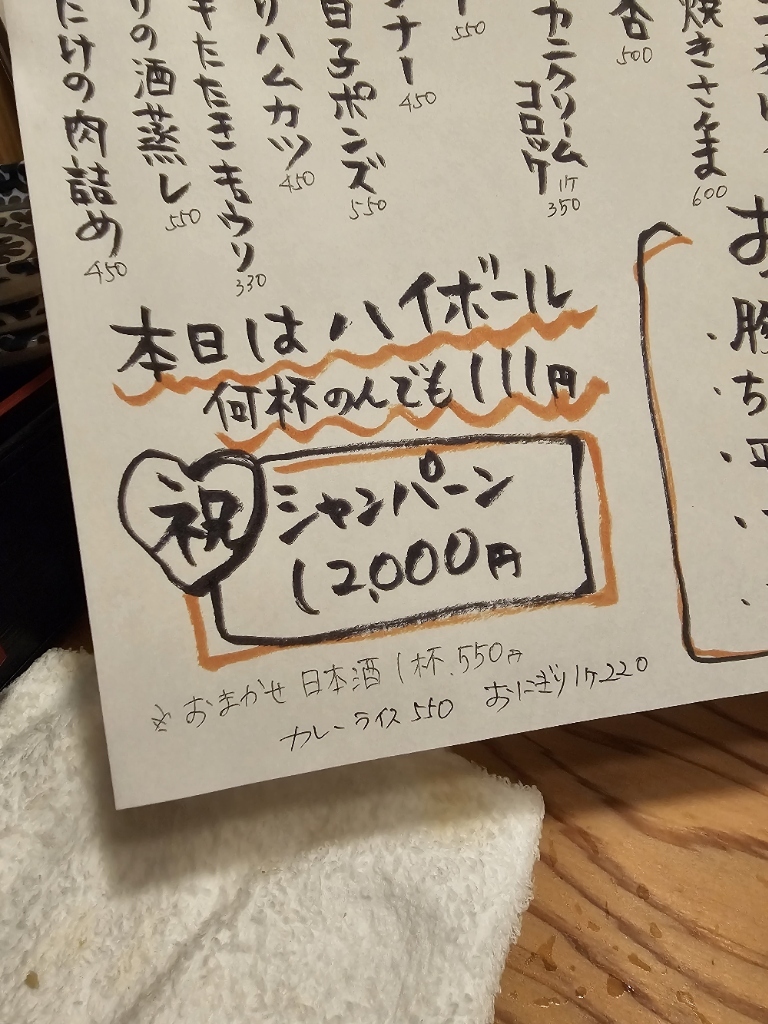 焼きさんま
600
杏
500
カニクリーム
コロッケ
1ケ
350
550
ナー
450
白子ポンズ
550
ハムカツ
450
たたききゅウリ
330
の酒蒸し
550
たけの肉詰め
450
本日はハイボール
何杯のんでも111円
祝
シャンパーン
12,000円
※おまかせ 日本酒1杯.550円
カレーライス550 おにぎり1ケ220
お
・
・ち
・平
・
・